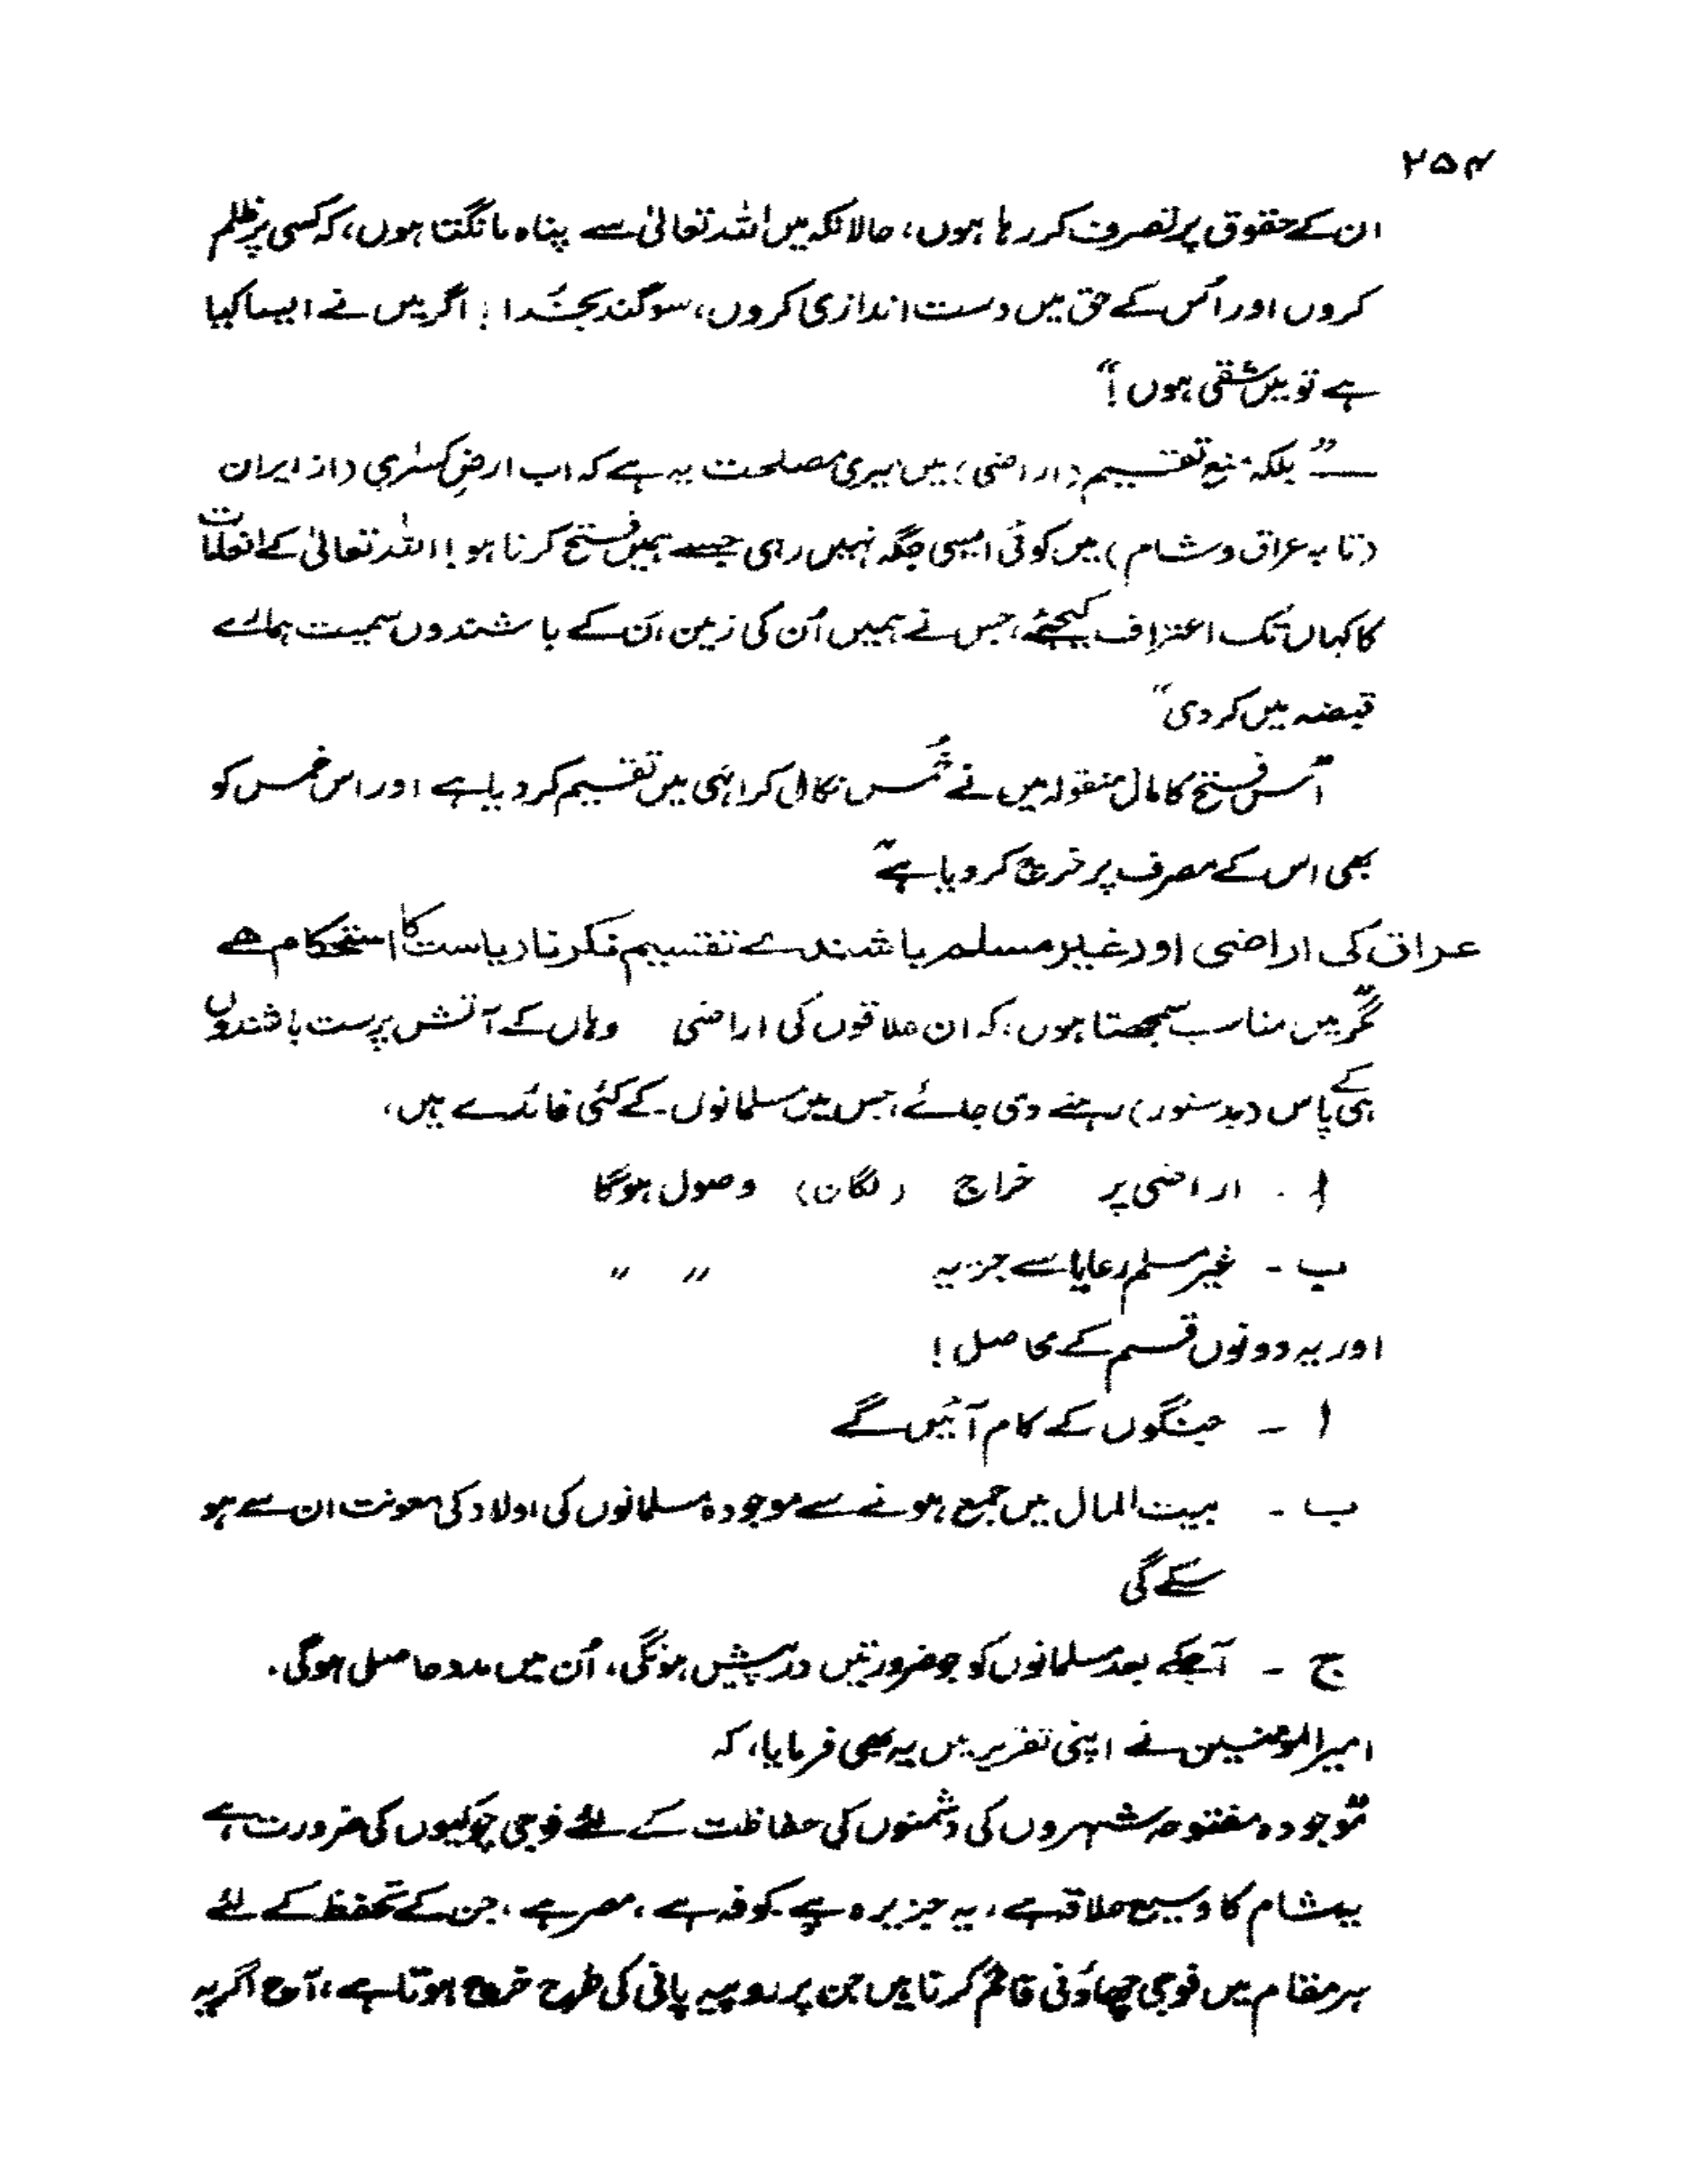 ۲۵۴
ان کے حقوق پر تصرف کر رہا ہوں، حالانکہ میں اللہ تعالیٰ سے پناہ مانگتا ہوں، کہ کسی پر ظلم
کروں اور اُس کے حق میں دست اندازی کروں، سوگند بخُدا! اگر میں نے ایسا کیا
ہے تو میں شقی ہوں!“
— ”بلکہ منع تقسیم (اراضی) میں میری مصلحت یہ ہے کہ اب ارضِ کسریٰ (از ایران
(تا بہ عراق و شام) میں کوئی ایسی جگہ نہیں رہی جسے ہمیں فتح کرنا ہو! اللہ تعالیٰ کے انعامات
کا کہاں تک اعتراف کیجئے، جس نے ہمیں اُن کی زمین، اُن کے باشندوں سمیت ہمارے
قبضہ میں کر دی“
”اُس فتح کا مال منقولہ میں نے خُمس نکال کر انہی میں تقسیم کر دیا ہے اور اس خمس کو
بھی اس کے مصرف پر خرچ کر دیا ہے“
عراق کی اراضی اور غیر مسلم باشندے تقسیم نکرنا ریاست کا استحکام ھے
”مگر میں مناسب سمجھتا ہوں، کہ ان علاقوں کی اراضی وہاں کے آتش پرست باشندوں
کے ہی پاس (بدستور) رہنے دی جائے، جس میں مسلمانوں کے کئی فائدے ہیں،
ا . اراضی پر خراج (لگان) وصول ہوگا
ب - غیر مسلم رعایا سے جزیہ 〃 〃
اور یہ دونوں قسم کے محاصل!
ا - جنگوں کے کام آئیں گے
ب - بیت المال میں جمع ہونے سے موجودہ مسلمانوں کی اولاد کی معونت ان سے ہو
سکے گی
ج - آپکے بعد مسلمانوں کو جو ضرورتیں درپیش ہونگی، اُن میں مدد حاصل ہوگی.
امیر المؤمنین نے اپنی تقریر میں یہ بھی فرمایا، کہ
”موجودہ مفتوحہ شہروں کی دشمنوں کی حفاظت کے لئے فوجی چوکیوں کی ضرورت ہے
یہ شام کا وسیع علاقہ ہے، یہ جزیرہ ہے کوفہ ہے، مصر ہے، جن کے تحفظ کے لئے
ہر مقام میں فوجی چھاؤنی قائم کرنا ہیں جن پر روپیہ پانی کی طرح خرچ ہوتا ہے، آج اگر یہ